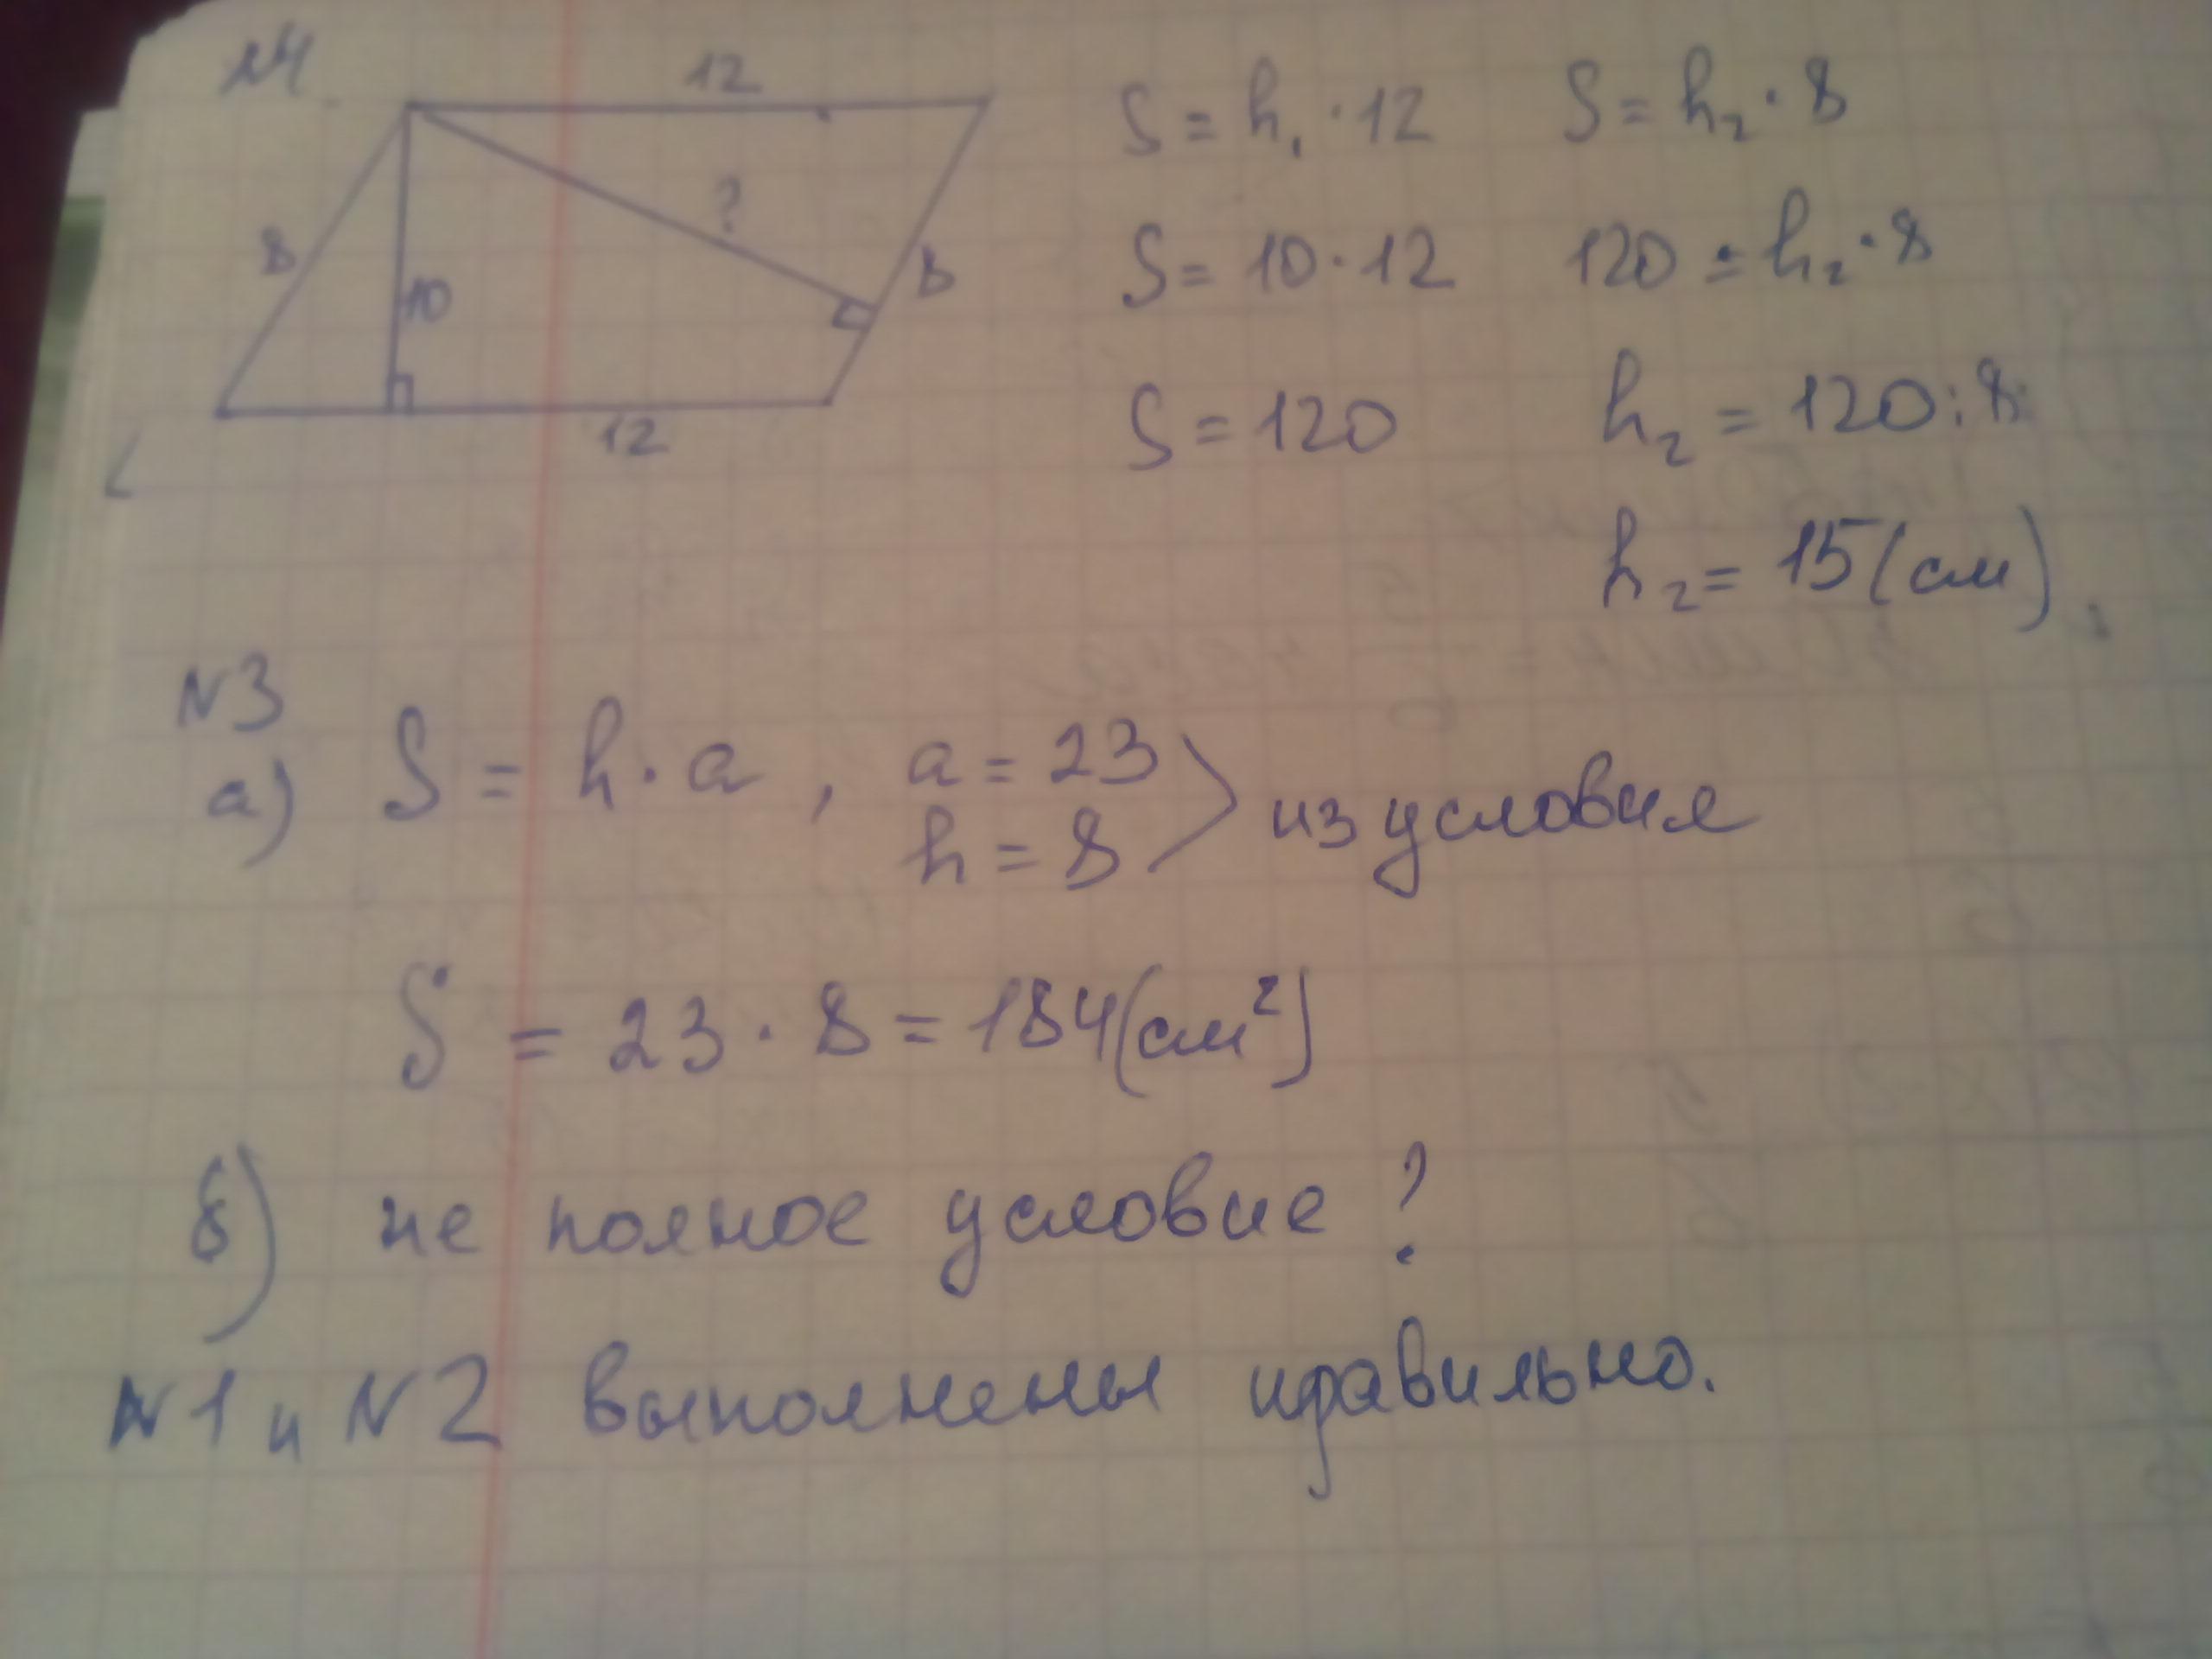 №4
12
8
?
10
8
12
S = h₁ · 12    S = h₂ · 8
S = 10 · 12    120 = h₂ · 8
S = 120    h₂ = 120 : 8
h₂ = 15 (см).
№3
а) S = h · a , a = 23
h = 8 > из условия
S = 23 · 8 = 184 (см²)
б) не полное условие?
№1 и №2 выполнены правильно.